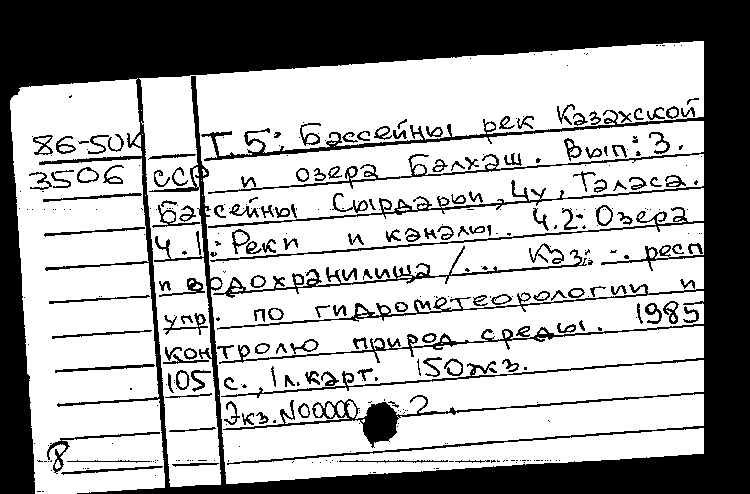 86-50К Т.5: Бассейны рек Казахской
3506 ССР и озера Балхаш. Вып: 3.
Бассейны Сырдарьи, Чу, Таласа.
Ч.1: Реки и каналы. Ч.2: Озера
и водохранилища /... Каз. респ
упр. по гидрометеорологии и
контролю природ. среды. 1985
105 с., 1 л. карт. 150экз.
Экз. N00000 2.
8